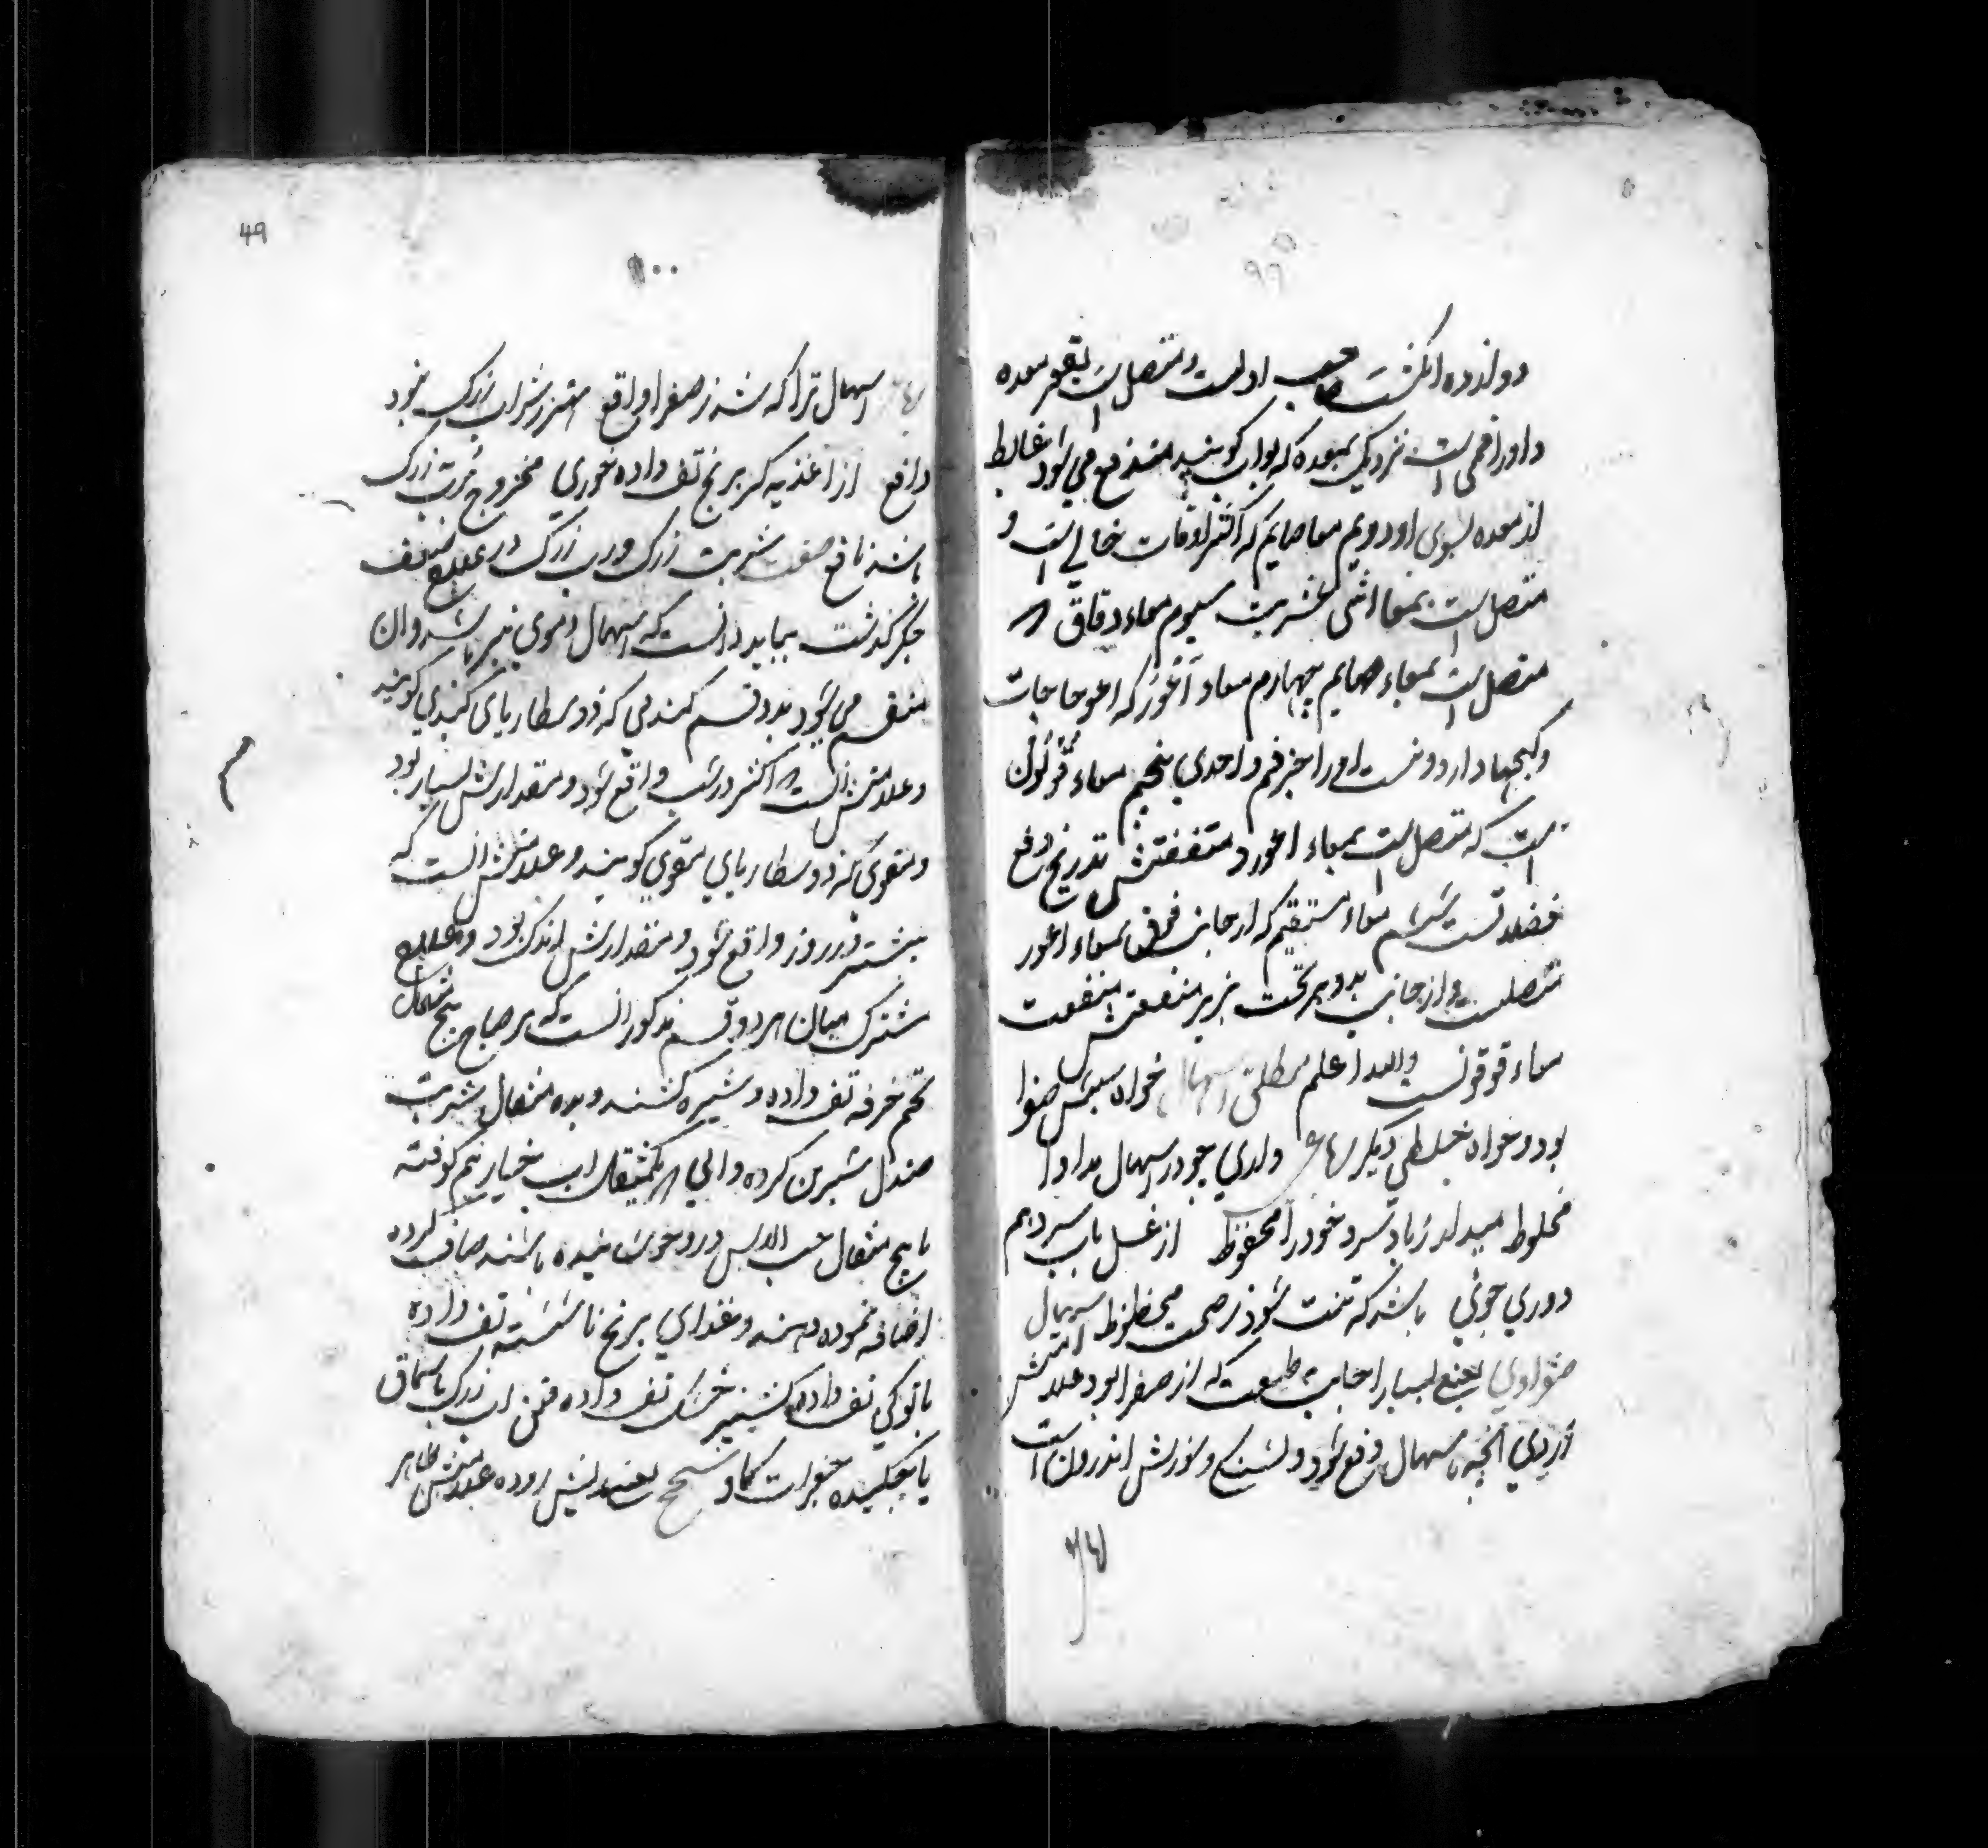 ۹۹
دوازده انگشت صاحب اولست و متصل است بقعر معده
و او را فمی است نزدیک بمعده که بواب گویند مندفع می شود غالبط
از معده بسوی او دویم معا صایم که اکثر اوقات خالی است و
متصل است بمعا اثنی عشریت سیوم معاء دقاق که
متصل است بمعاء صایم چهارم معاء اَعْوَر که اعوجاجات
و کجیها دارد و نیست او را جز فم واحدی پنجم معاء قولون
است که متصل است بمعاء اعور و منفعتش تدریج دفع
فضلاتست ششم معاء مستقیم که از جانب فوق بمعاء اعور
متصلست و از جانب بدبر تحت بزیر منفعتش منفعت
معاء قوقونست والله اعلم مطلق اسهال خواه سببش صفرا
بود و خواه خلطی دیگر رباعی داری چو در اسهال مداوا
مخلوط میدار زباد سرد خود را محفوظ از غسل باب سرد هم
دوری جوئی باشد که تنت شود ز صحت محظوظ اسهال
صفراوی یعنی بسیار اجابت طبیعت که از صفرا بود علامتش
زردی آنچه باسهال دفع شود و تشنگی و سوزش اندرون است
49
۱۰۰
اسهال ترا که شد ز صفرا واقع زرشراب زرک بود
دافع از اغذیه گر برنج تف داده خوری ممزوج بزرک
باشد نافع صفت شربت زرک و رب زرک در علاج ضعف
جگر گذشت بباید دانست که اسهال دموی نیز باشد و ان
منقسم می شود بدو قسم کبدی که ذوسطاریای کبدی گویند
و علامتش انست که اکثر در شب واقع شود و مقدارش بسیار بود
و معوی که ذوسطاریای معوی گویند و علامتش انست که
بیشتر در روز واقع شود و مقدارش اندک بود و علاج
مشترک میان هر دو قسم مذکور انست که هر صباح پنج مثقال
تخم خرفه تف داده و شیره کشند و بده مثقال شربت
صندل شیرین کرده و الی یکمثقال اب خیار نیم کوفته
با پنج مثقال حب الاس درو خوشانیده باشند صاف کرده
اضافه نموده دهند و غذای برنج ناشسته تف داده
باتوکی تف داده کشنیز خشک تف داده اب زرک یا سماق
یا بچکیده جغرات کماد سحج یعنی ریش روده علامتش ظاهر